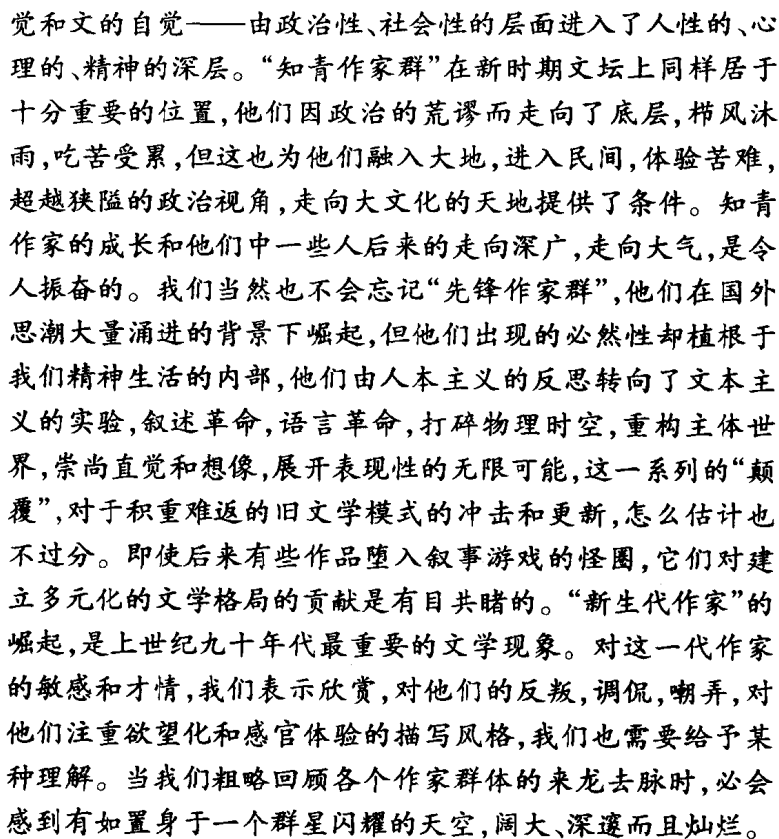 觉和文的自觉——由政治性、社会性的层面进入了人性的、心
理的、精神的深层。“知青作家群”在新时期文坛上同样居于
十分重要的位置,他们因政治的荒谬而走向了底层,栉风沐
雨,吃苦受累,但这也为他们融入大地,进入民间,体验苦难,
超越狭隘的政治视角,走向大文化的天地提供了条件。知青
作家的成长和他们中一些人后来的走向深广,走向大气,是令
人振奋的。我们当然也不会忘记“先锋作家群”,他们在国外
思潮大量涌进的背景下崛起,但他们出现的必然性却植根于
我们精神生活的内部,他们由人本主义的反思转向了文本主
义的实验,叙述革命,语言革命,打碎物理时空,重构主体世
界,崇尚直觉和想像,展开表现性的无限可能,这一系列的“颠
覆”,对于积重难返的旧文学模式的冲击和更新,怎么估计也
不过分。即使后来有些作品堕入叙事游戏的怪圈,它们对建
立多元化的文学格局的贡献是有目共睹的。“新生代作家”的
崛起,是上世纪九十年代最重要的文学现象。对这一代作家
的敏感和才情,我们表示欣赏,对他们的反叛,调侃,嘲弄,对
他们注重欲望化和感官体验的描写风格,我们也需要给予某
种理解。当我们粗略回顾各个作家群体的来龙去脉时,必会
感到有如置身于一个群星闪耀的天空,阔大、深邃而且灿烂。